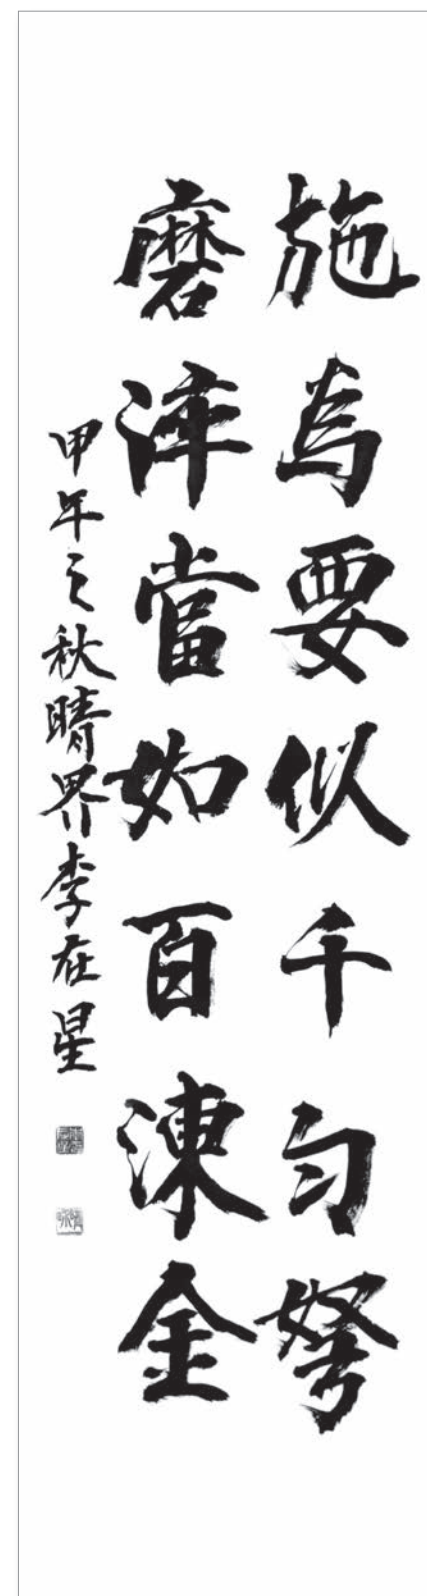 施為要似千匀弩
磨淬當如百湅金
甲午之秋晴界李在星